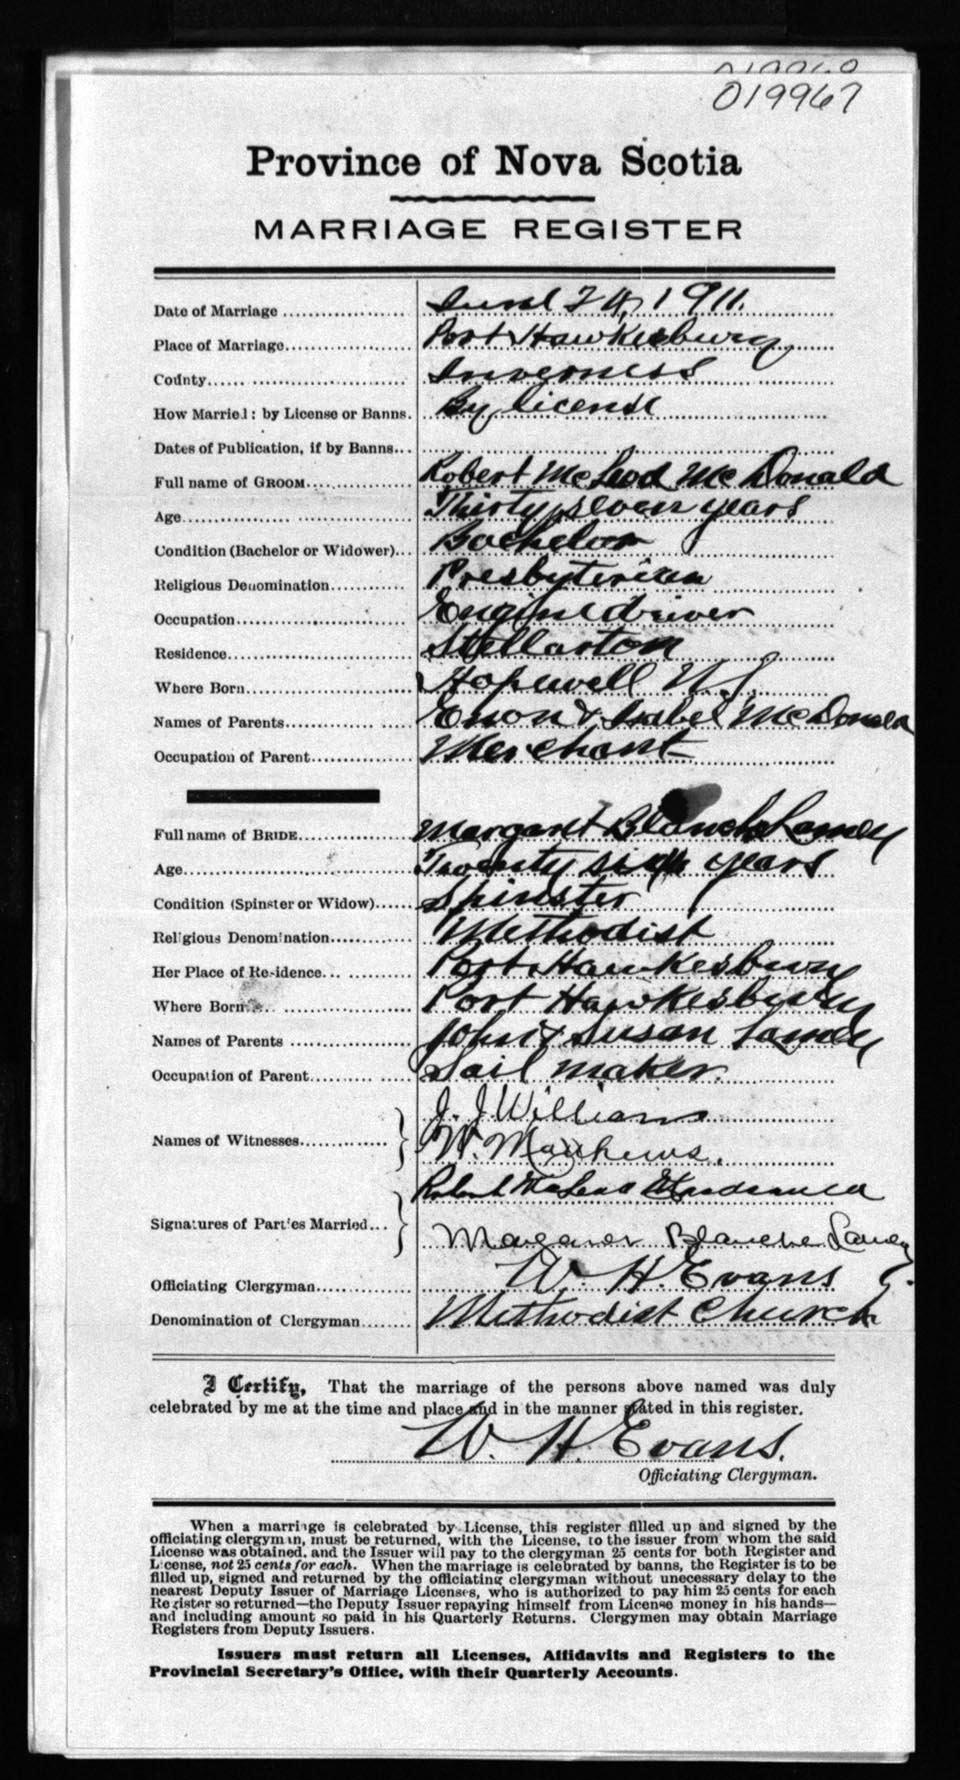 019967
Province of Nova Scotia
MARRIAGE REGISTER
Date of Marriage 1911.
Place of Marriage Port Hawkesbury
County Inverness
How Married: by License or Banns. By license
Dates of Publication, if by Banns
Full name of GROOM Robert McLeod McDonald
Age Thirty seven years
Condition (Bachelor or Widower) Bachelor
Religious Denomination Presbyterian
Occupation Engine driver
Residence Stellarton
Where Born Hopewell N.S.
Names of Parents & Isabel McDonald
Occupation of Parent Merchant
Full name of BRIDE Margaret Blanche Lamey
Age Twenty six years
Condition (Spinster or Widow) Spinster
Religious Denomination Methodist
Her Place of Residence Port Hawkesbury
Where Born Port Hawkesbury
Names of Parents John & Susan Lamey
Occupation of Parent Sail maker.
Names of Witnesses J. J Williams
W. Matthews.
Signatures of Parties Married Robert
Margaret Blanche Lamey
Officiating Clergyman W. H. Evans
Denomination of Clergyman Methodist Church
I Certify, That the marriage of the persons above named was duly
celebrated by me at the time and place and in the manner stated in this register.
W. H. Evans.
Officiating Clergyman.
When a marriage is celebrated by License, this register filled up and signed by the
officiating clergyman, must be returned, with the License, to the issuer from whom the said
License was obtained, and the Issuer will pay to the clergyman 25 cents for both Register and
License, not 25 cents for each. When the marriage is celebrated by banns, the Register is to be
filled up, signed and returned by the officiating clergyman without unecessary delay to the
nearest Deputy Issuer of Marriage Licenses, who is authorized to pay him 25 cents for each
Register so returned—the Deputy Issuer repaying himself from License money in his hands—
and including amount so paid in his Quarterly Returns. Clergymen may obtain Marriage
Registers from Deputy Issuers.
Issuers must return all Licenses, Affidavits and Registers to the
Provincial Secretary's Office, with their Quarterly Accounts.